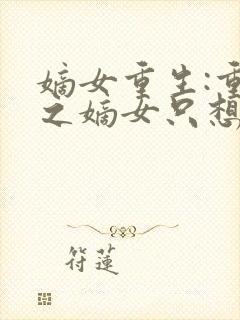 嫡女重生:重
之嫡女只想
符莲